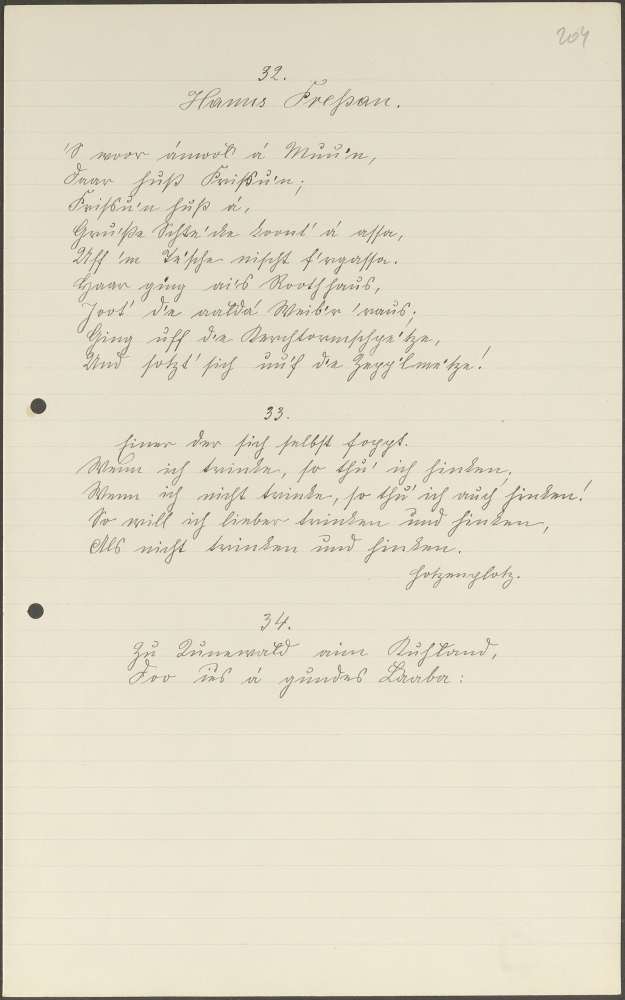 204
32.
Hanns Freßan.
'S woor ámool á Muu'n,
Daar huß Frißu'n;
Frißu'n huß á,
Gru'ße Schte'cke koont' á assa,
Uff 'm Te'sche nischt f'rgassa.
Haar ging ai's Roothhaus,
Joot' d'e aalda Weib'r 'raus;
Ging uff d'e Kerchtormschpe'tze,
Und sotzt' sich uu'f de Zepp'lme'tze!
33.
Einer der sich selbst foppt.
Wenn ich trinke, so thu' ich hinken,
Wenn ich nicht trinke, so thu' ich auch hinken!
So will ich lieber trinken und hinken,
Als nicht trinken und hinken.
Hotzenplotz.
34.
Zu Kunewald aim Kuhland,
Doo ies á gundes Laaba: